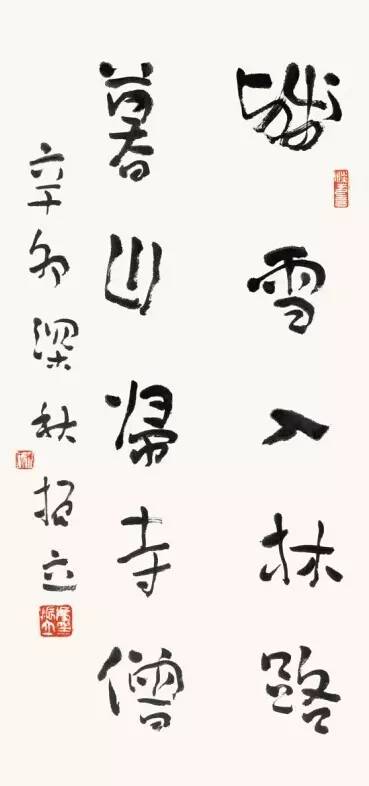 残雪入林路
暮山帰寺僧
辛卯深秋振立